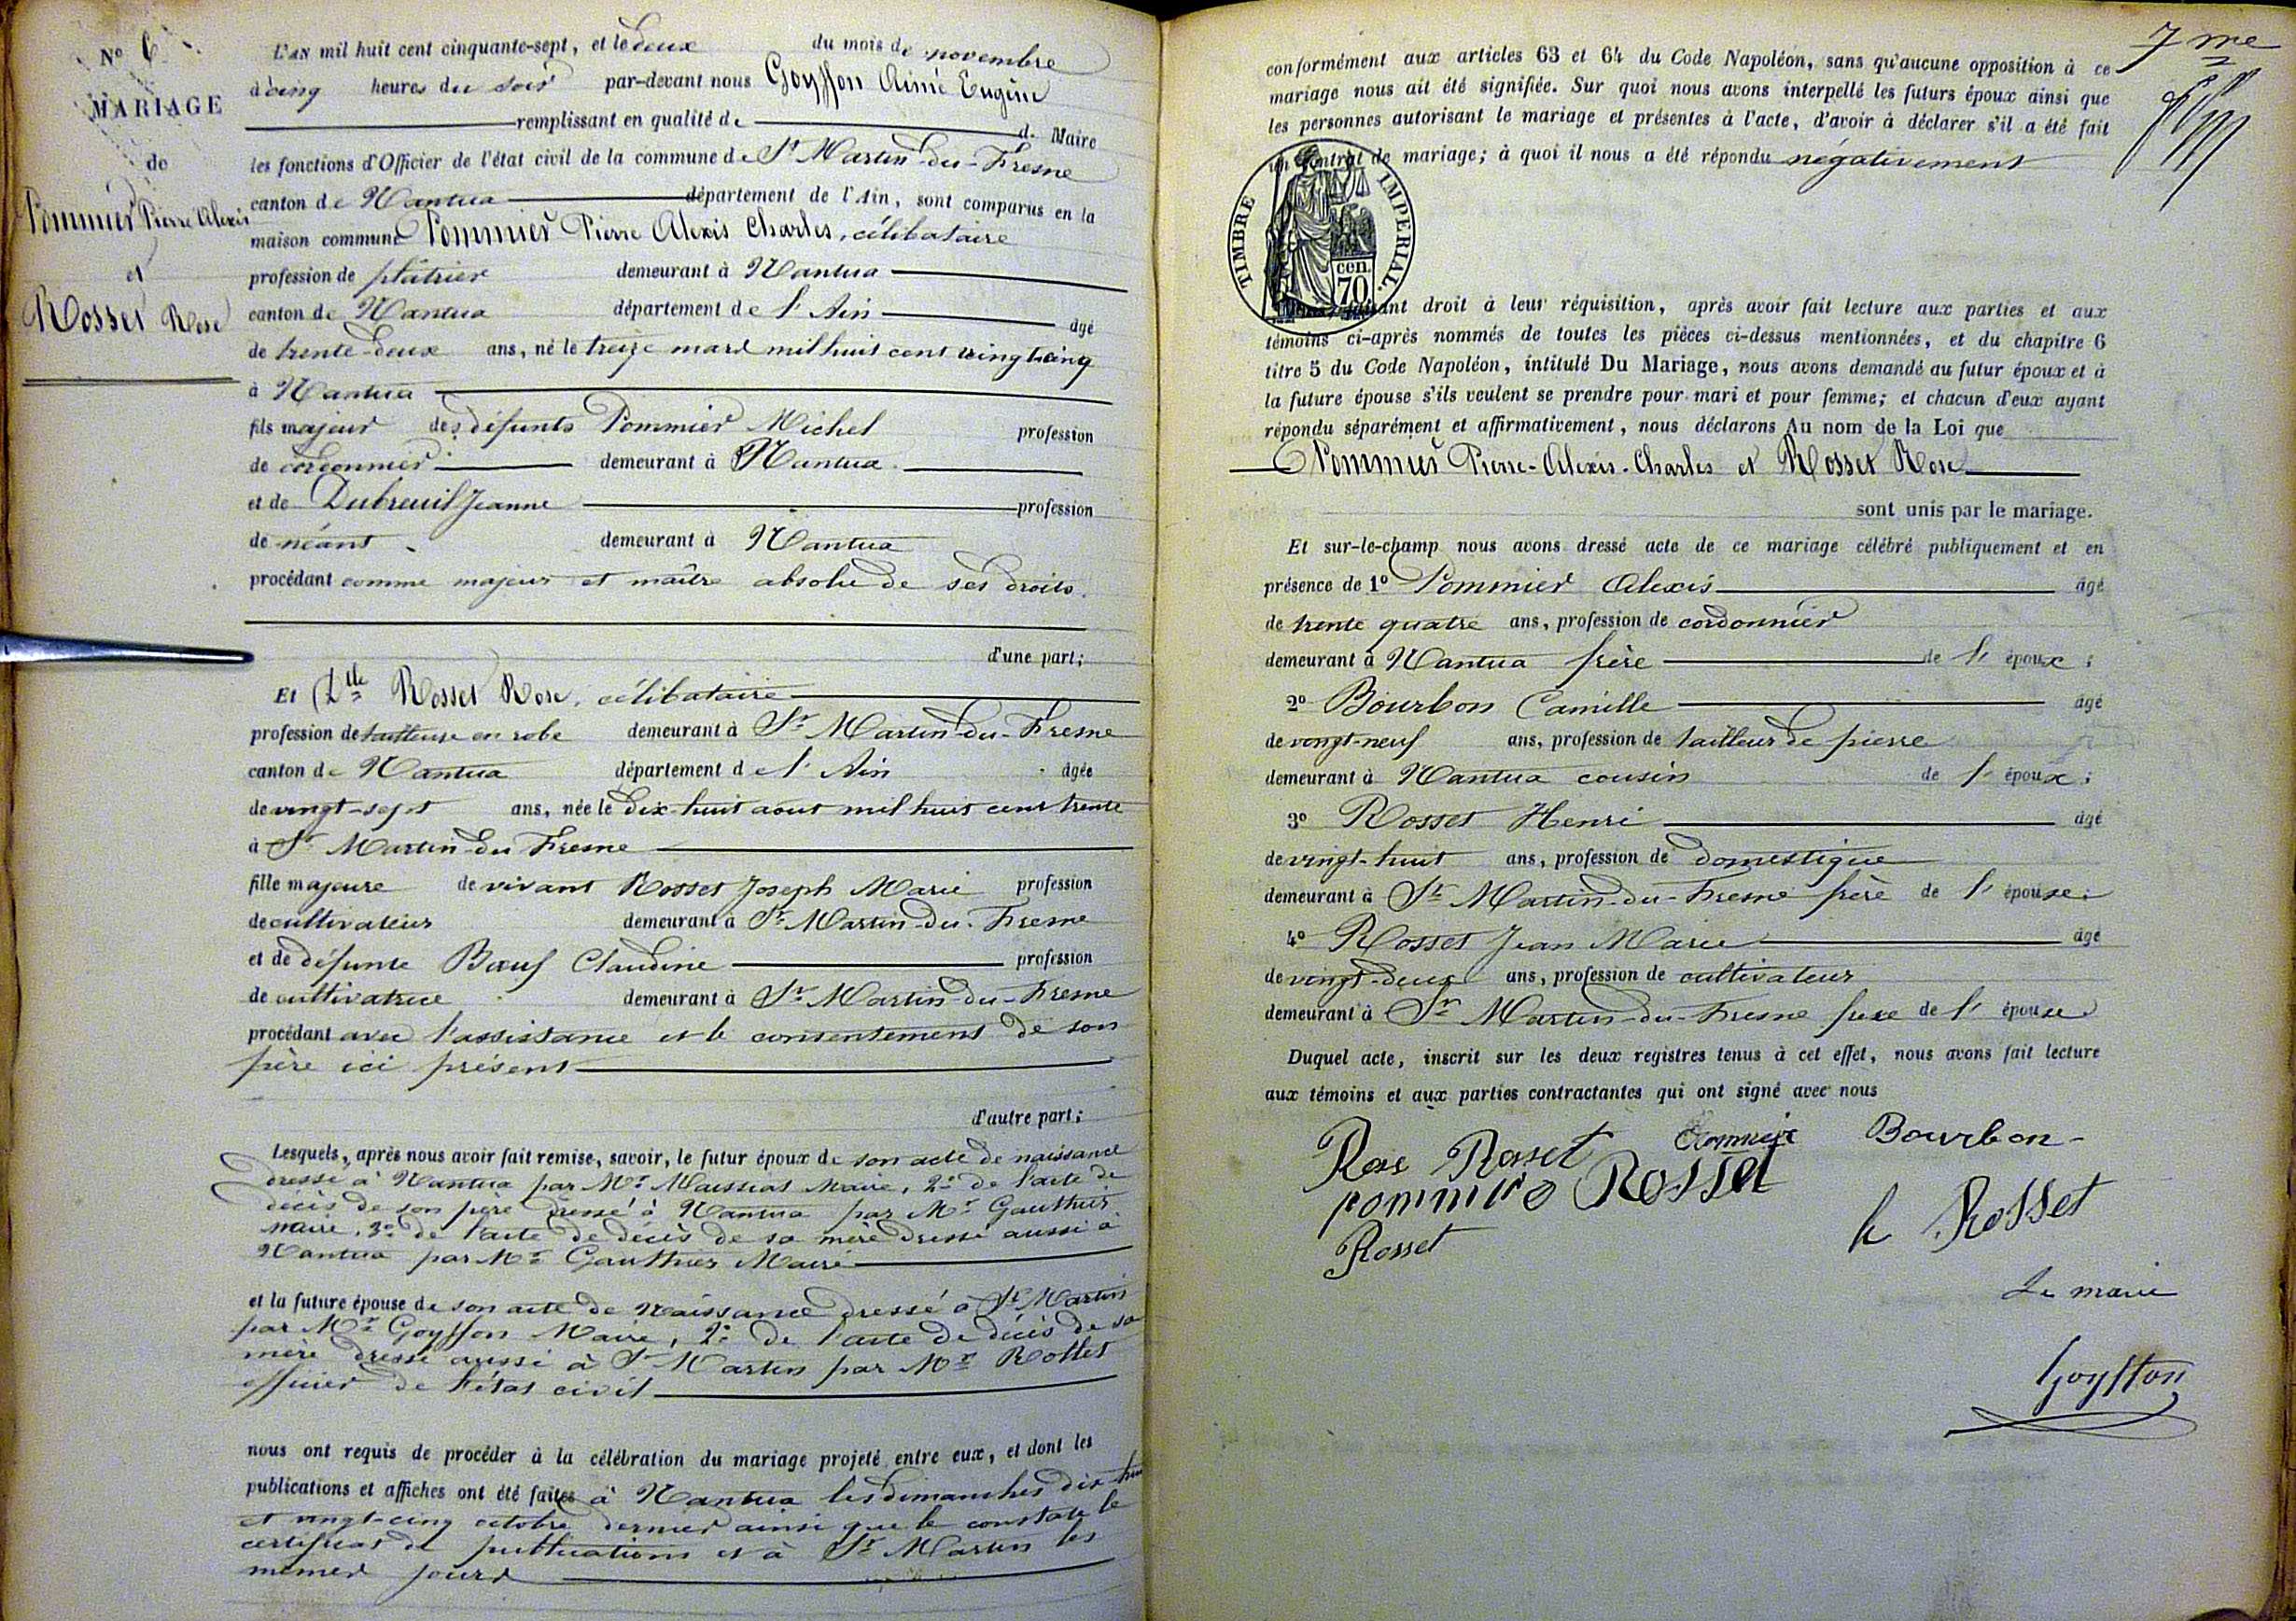 N° 6
MARIAGE
de
Pommier Pierre Alexis
et
Rosset Rose
L'AN mil huit cent cinquante-sept, et le deux du mois de novembre
à cinq heures du soir par-devant nous Goyffon Aimé Eugène
remplissant en qualité de d. Maire
les fonctions d'Officier de l'état civil de la commune de St Martin-du-Fresne
canton de Nantua département de l'Ain, sont comparus en la
maison commune Pommier Pierre Alexis Charles, célibataire
profession de plâtrier demeurant à Nantua
canton de Nantua département de l'Ain âgé
de trente-deux ans, né le treize mars mil huit cent vingt cinq
à Nantua
fils majeur des défunts Pommier Michel profession
de cordonnier demeurant à Nantua
et de Dubreuil Jeanne profession
de néant demeurant à Nantua
procédant comme majeur et maître absolu de ses droits.
d'une part;
Et Dlle Rosset Rose, célibataire
profession de tailleuse en robe demeurant à St Martin-du-Fresne
canton de Nantua département de l'Ain âgée
de vingt-sept ans, née le dix-huit aout mil huit cent trente
à St Martin-du Fresne
fille majeure de vivant Rosset Joseph Marie profession
de cultivateur demeurant à St Martin-du-Fresne
et de défunte Bœuf Claudine profession
de cultivatrice demeurant à St Martin-du-Fresne
procédant avec l'assistance et le consentement de son
père ici présent
d'autre part;
Lesquels, après nous avoir fait remise, savoir, le futur époux de son acte de naissance
dressé à Nantua par Mr Maissiat Maire, 2° de l'acte de
décès de son père dressé à Nantua par Mr Gauthier
maire, 3° de l'acte de décès de sa mère dressé aussi à
Nantua par Mr Gauthier Maire
et la future épouse de son acte de Naissance dressé à St Martin
par Mr Goyffon Maire, 2° de l'acte de décès de sa
mère dressé aussi à St Martin par Mr Rollet
officier de l'état civil
nous ont requis de procéder à la célébration du mariage projeté entre eux, et dont les
publications et affiches ont été faites à Nantua les dimanches dix-huit
et vingt-cinq octobre dernier ainsi que le constate le
certificat de publications et à St Martin les
mêmes jours
7 me
conformément aux articles 63 et 64 du Code Napoléon, sans qu'aucune opposition à ce
mariage nous ait été signifiée. Sur quoi nous avons interpellé les futurs époux ainsi que
les personnes autorisant le mariage et présentes à l'acte, d'avoir à déclarer s'il a été fait
un contrat de mariage; à quoi il nous a été répondu négativement
TIMBRE IMPERIAL.
cen.
70
Nous, faisant droit à leur réquisition, après avoir fait lecture aux parties et aux
témoins ci-après nommés de toutes les pièces ci-dessus mentionnées, et du chapitre 6
titre 5 du Code Napoléon, intitulé Du Mariage, nous avons demandé au futur époux et à
la future épouse s'ils veulent se prendre pour mari et pour femme; et chacun d'eux ayant
répondu séparément et affirmativement, nous déclarons Au nom de la Loi que
Pommier Pierre-Alexis-Charles et Rosset Rose
sont unis par le mariage.
Et sur-le-champ nous avons dressé acte de ce mariage célébré publiquement et en
présence de 1° Pommier Alexis âgé
de trente quatre ans, profession de cordonnier
demeurant à Nantua frère de l'époux;
2° Bourbon Camille âgé
de vingt-neuf ans, profession de tailleur de pierre
demeurant à Nantua cousin de l'époux;
3° Rosset Henri âgé
de vingt-huit ans, profession de domestique
demeurant à St Martin-du-Fresne frère de l'épouse;
4° Rosset Jean Marie âgé
de vingt-deux ans, profession de cultivateur
demeurant à St Martin-du-Fresne frère de l'épouse
Duquel acte, inscrit sur les deux registres tenus à cet effet, nous avons fait lecture
aux témoins et aux parties contractantes qui ont signé avec nous
Rose Rosset Pommier Bourbon
pommier Rosset
h Rosset
Rosset
Le maire
Goyffon